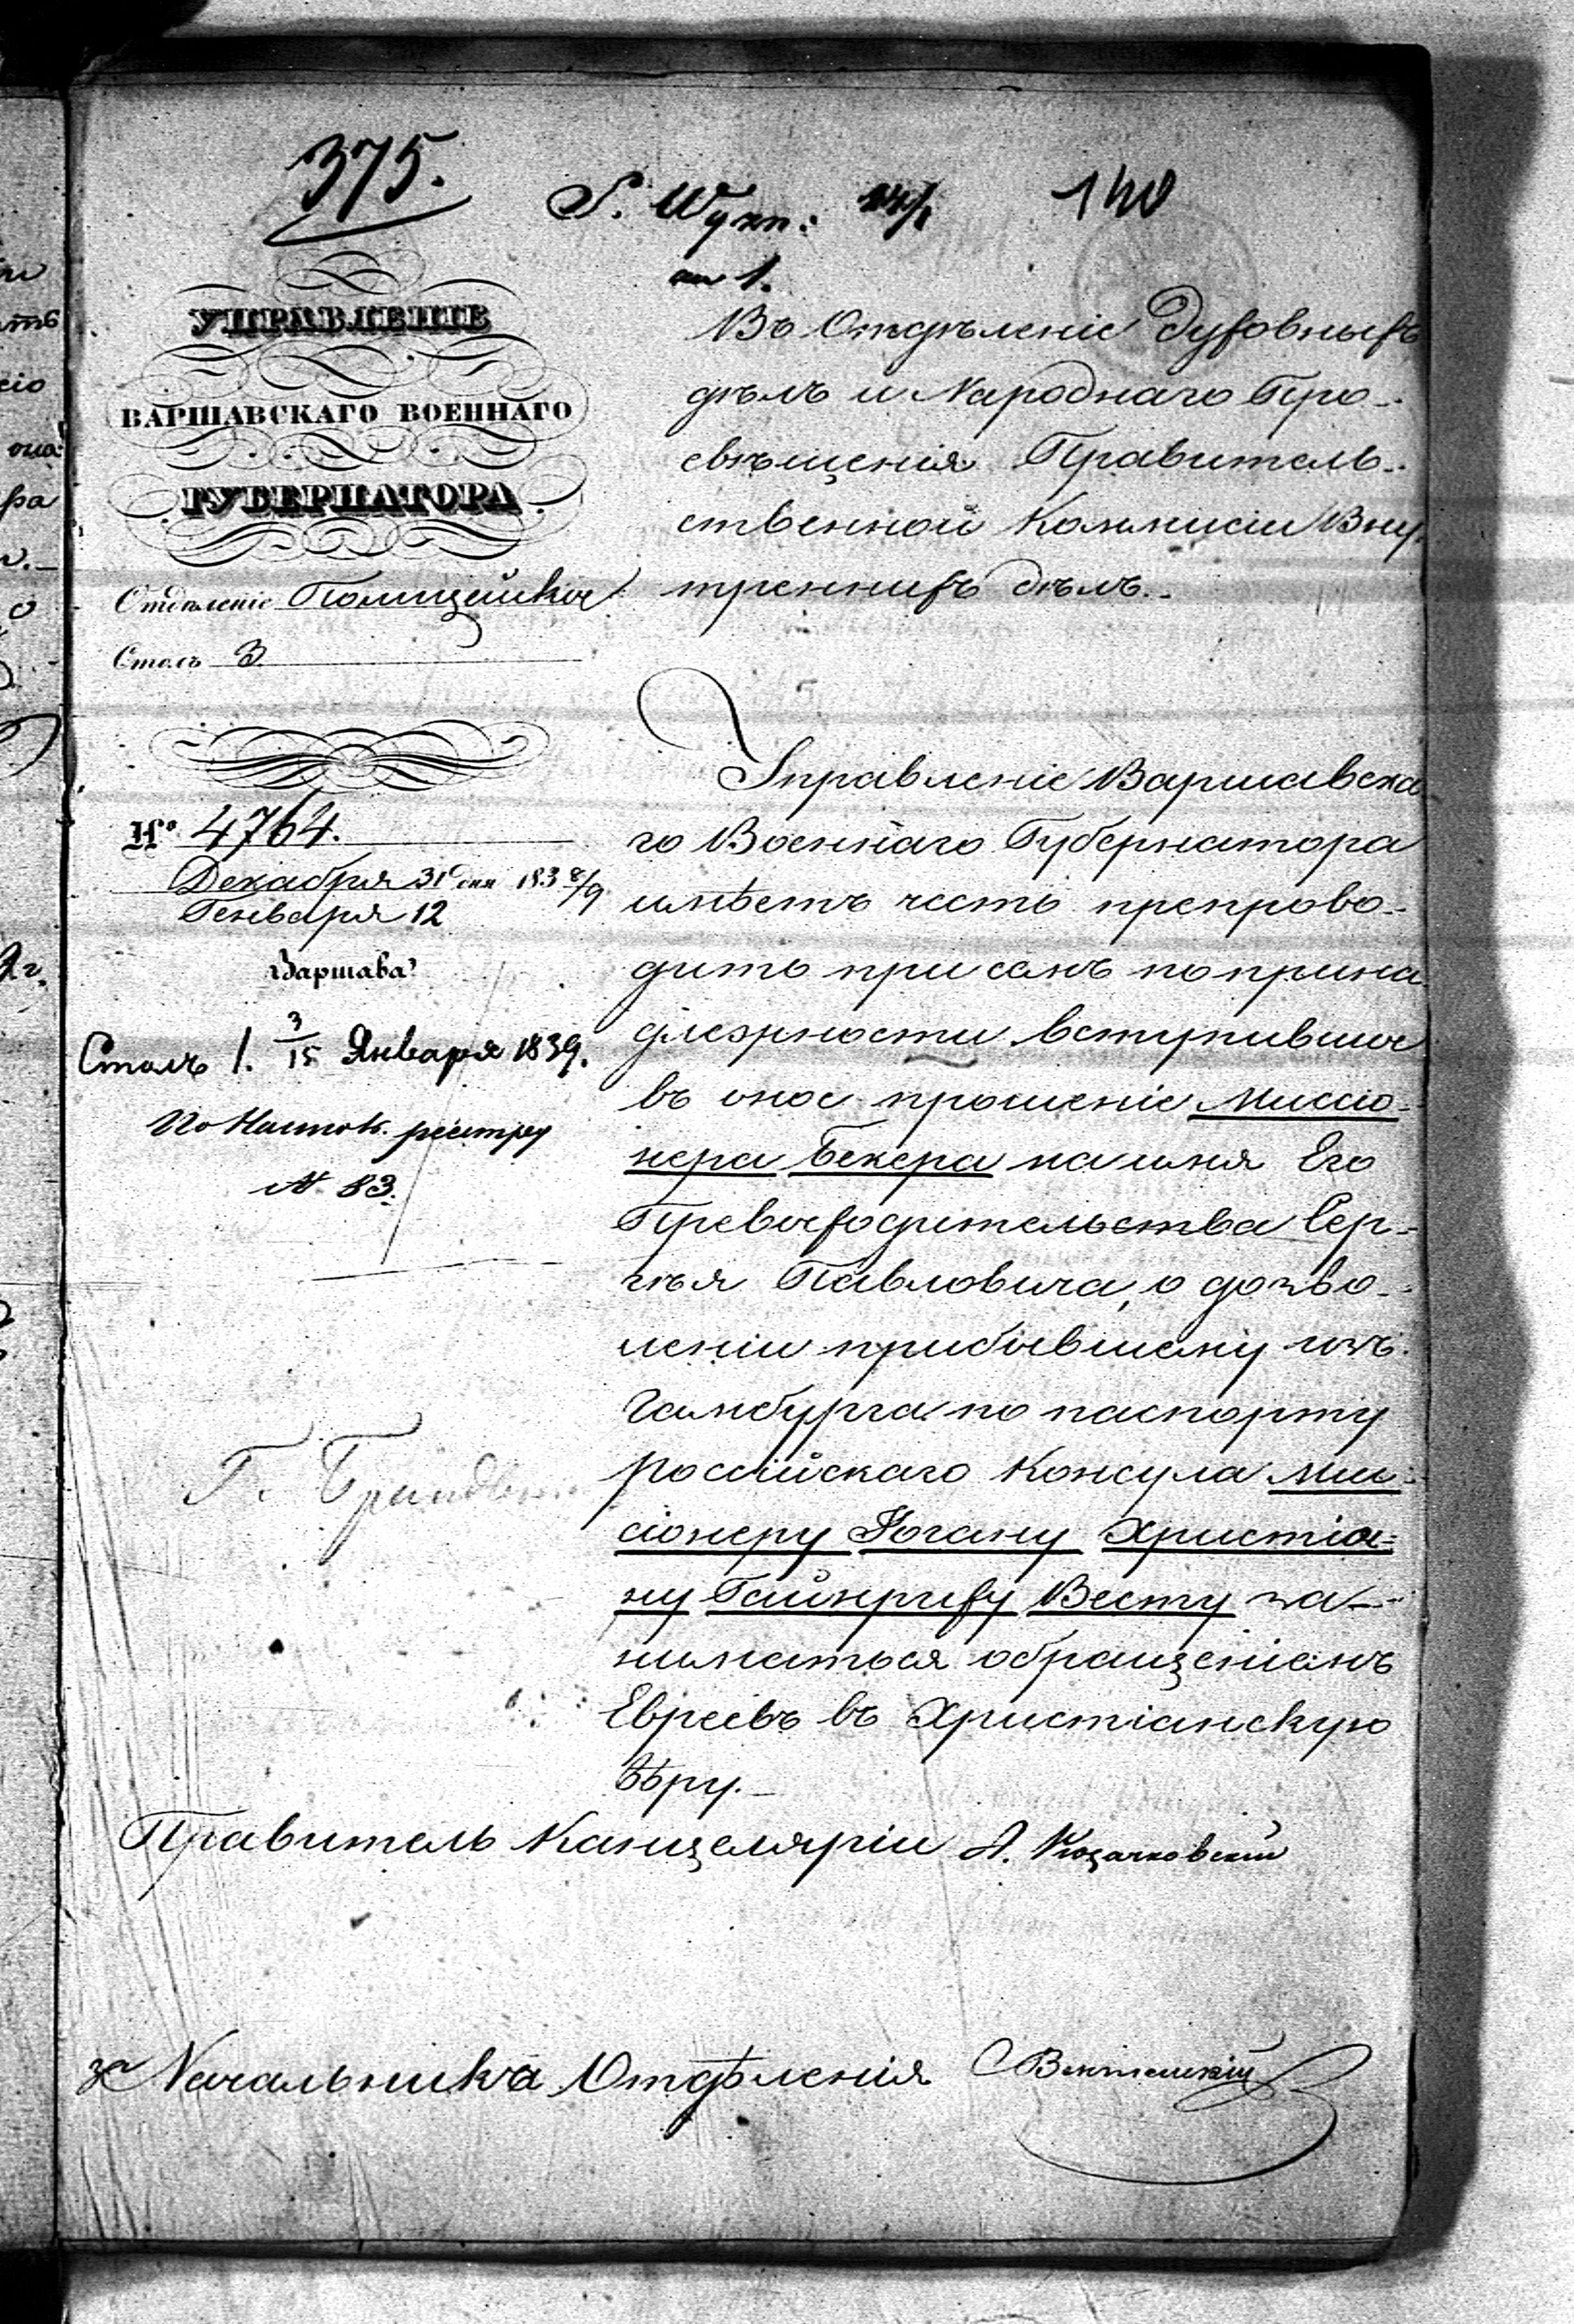 375.
140
УПРАВЛЕНІЕ
ВАРШАВСКАГО ВОЕННАГО
ГУБЕРНАТОРА
Отдѣленіе Полицейское
Столъ 3
№ 4764.
Декабря 31 дня 1838/9
Генваря 12
Варшава
Столъ 1. 3/15 Января 1839.
По реестру
№ 83.
Въ Отдѣленіе Духовныхъ
дѣлъ и Народнаго Про-
свѣщенія Правитель-
ственной Коммисіи Вну-
треннихъ дѣлъ.
Управленіе Варшавска
го Военнаго Губернатора
имѣетъ честь препрово-
дить при семъ по прина
длежности вступившее
въ оное прошеніе Миссіо-
нера Бекера на имя Его
Превосходительства Сер-
гѣя Павловича, о дозво-
леніи прибывшему изъ
Гамбурга по паспорту
Россійскаго Консула Мис-
сіонеру Іогану Христіа-
ну Гайнриху Весту за-
ниматься обращеніемъ
Евреевъ въ Христіанскую
вѣру.
Правитель Канцеляріи А. Козачковскій
за Начальника Отдѣленія